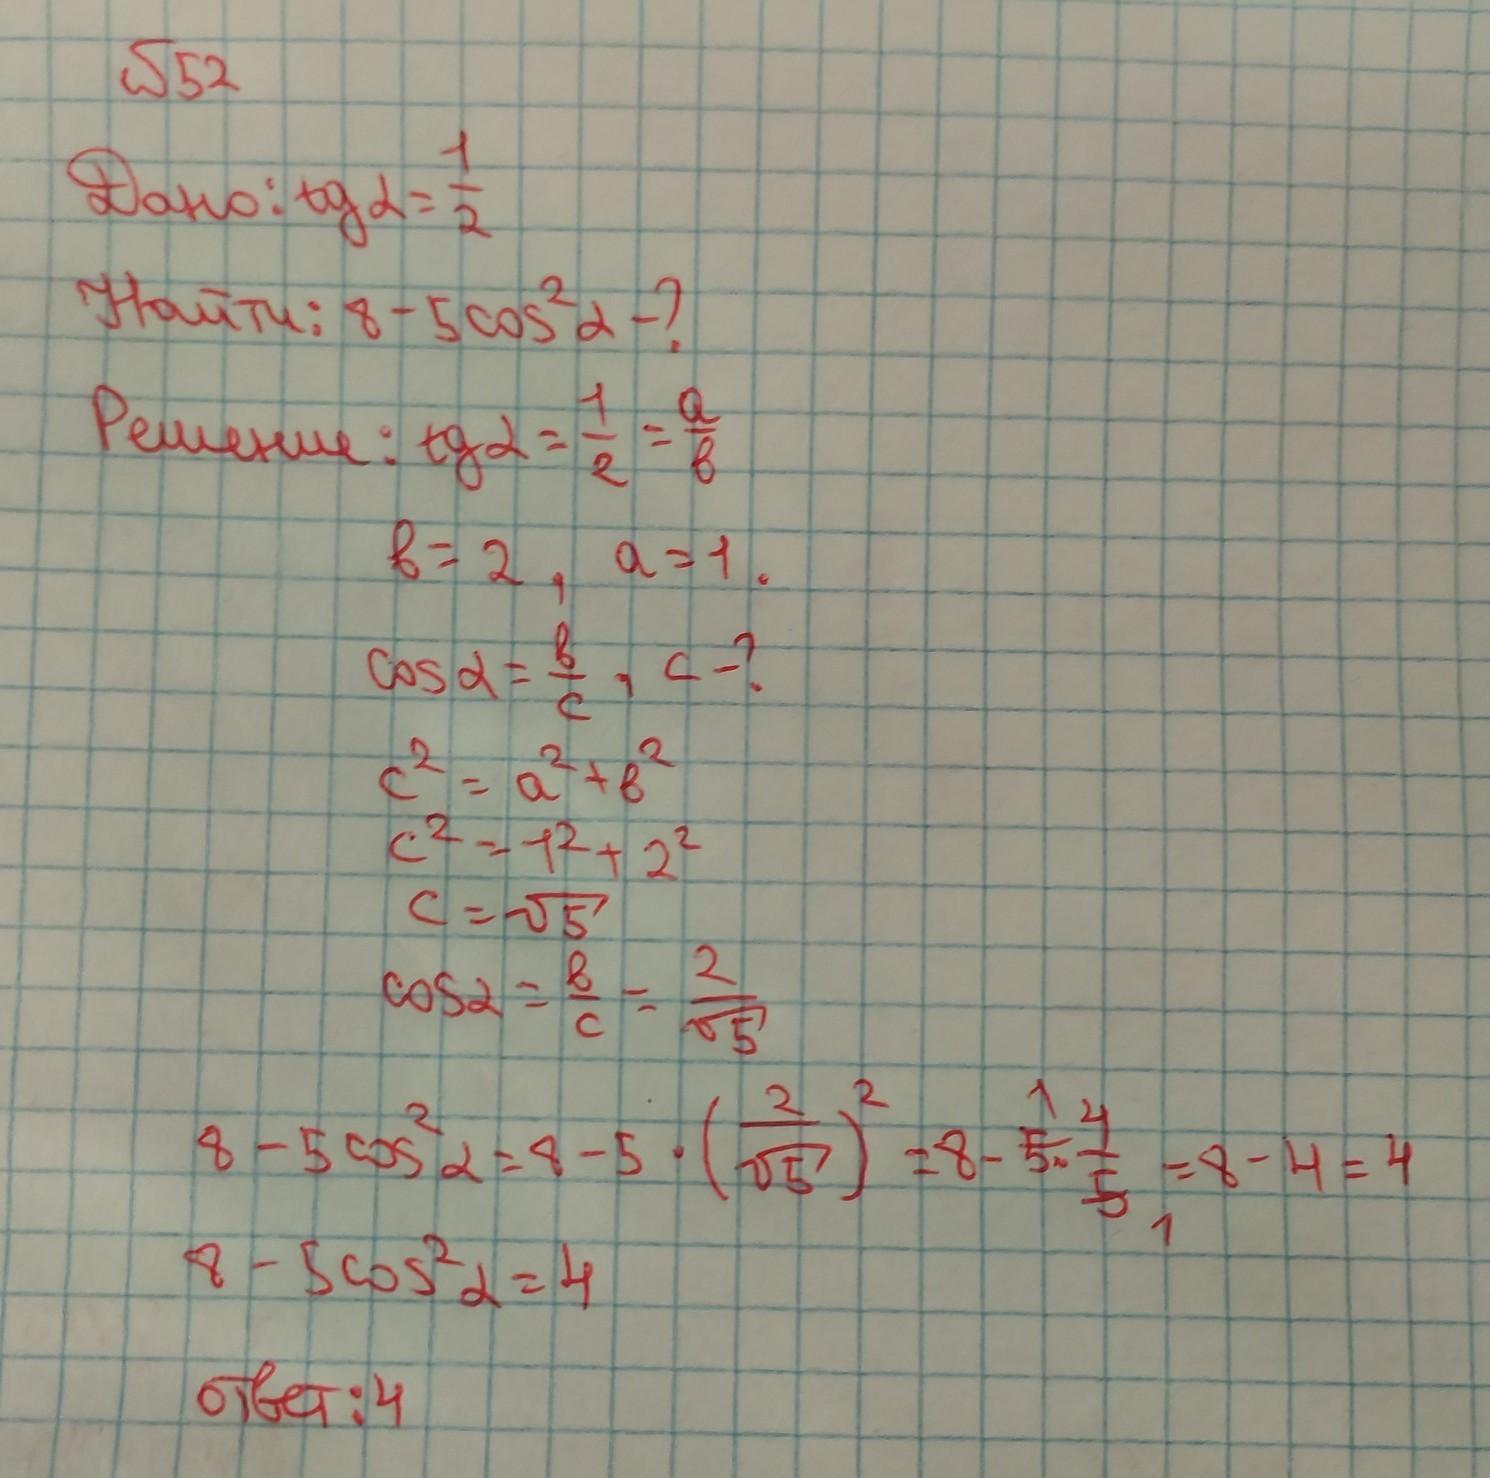 №52
Дано: tgα = 1/2
Найти: 8 - 5cos²α - ?
Решение: tgα = 1/2 = a/b
b = 2, a = 1.
cosα = b/c, c - ?
c² = a² + b²
c² = 1² + 2²
c = √5
cosα = b/c = 2/√5
8 - 5cos²α = 8 - 5 · (2/√5)² = 8 - 5 · 4/5 = 8 - 4 = 4
8 - 5cos²α = 4
ответ: 4